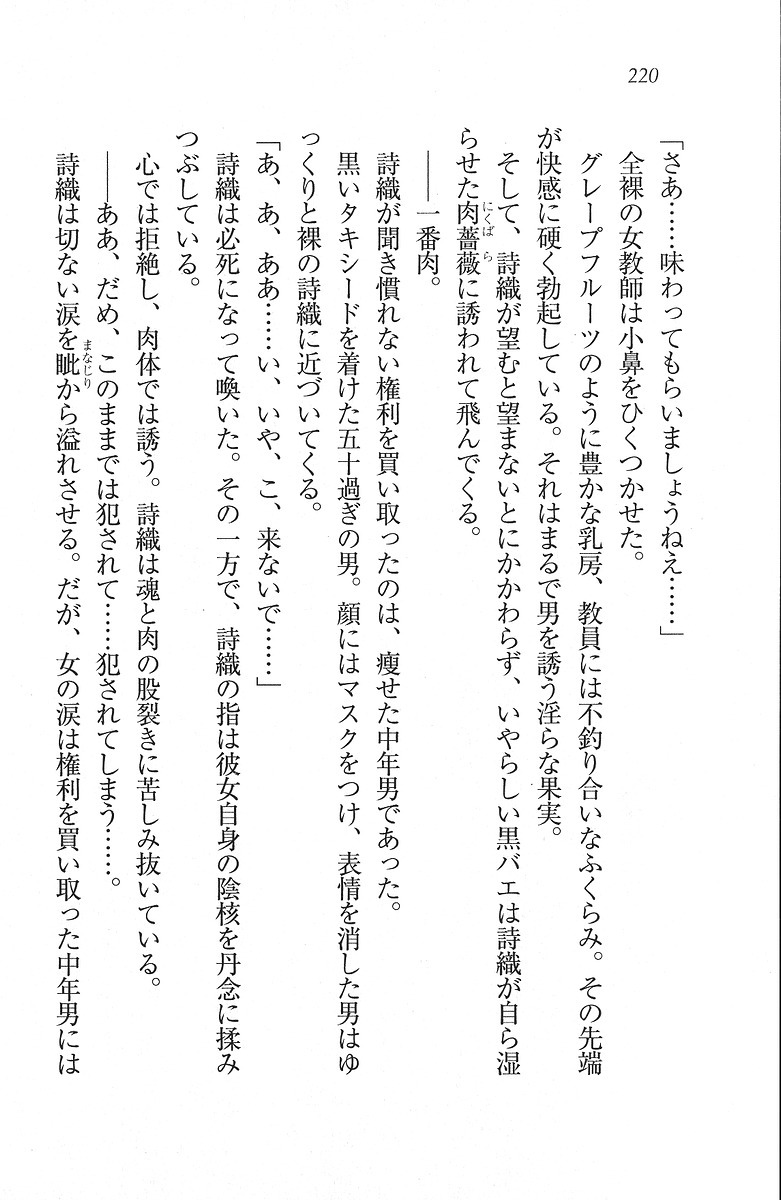 220
「さあ……味わってもらいましょうねえ……」
全裸の女教師は小鼻をひくつかせた。
グレープフルーツのように豊かな乳房、教員には不釣り合いなふくらみ。その先端
が快感に硬く勃起している。それはまるで男を誘う淫らな果実。
そして、詩織が望むと望まないとにかかわらず、いやらしい黒バエは詩織が自ら湿
らせた肉薔薇に誘われて飛んでくる。
にくばら
――一番肉。
詩織が聞き慣れない権利を買い取ったのは、痩せた中年男であった。
黒いタキシードを着けた五十過ぎの男。顔にはマスクをつけ、表情を消した男はゆ
っくりと裸の詩織に近づいてくる。
「あ、あ、ああ……い、いや、こ、来ないで……」
詩織は必死になって喚いた。その一方で、詩織の指は彼女自身の陰核を丹念に揉み
つぶしている。
心では拒絶し、肉体では誘う。詩織は魂と肉の股裂きに苦しみ抜いている。
――ああ、だめ、このままでは犯されて……犯されてしまう……。
詩織は切ない涙を眦から溢れさせる。だが、女の涙は権利を買い取った中年男には
まなじり